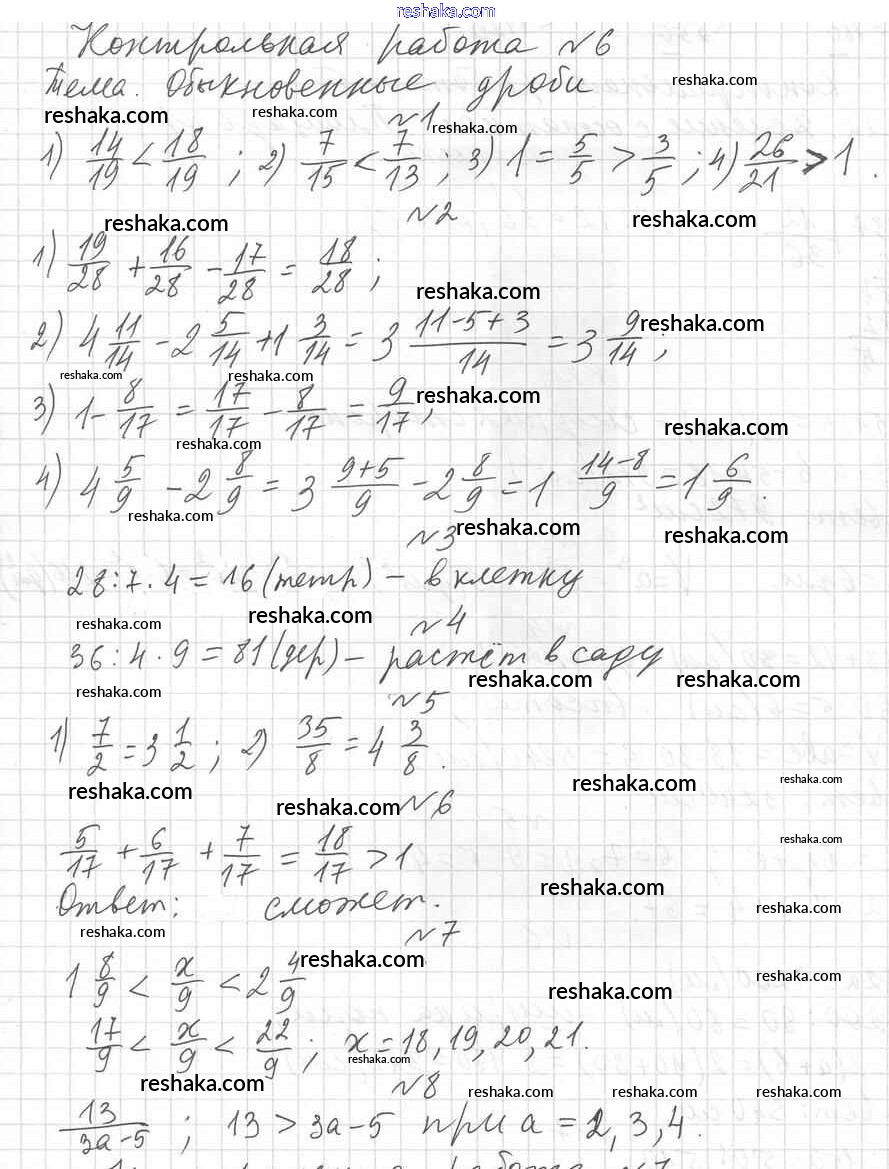 reshaka.com
Контрольная работа №6
Тема. Обыкновенные дроби
reshaka.com
reshaka.com reshaka.com reshaka.com
№1
1) 14/19 < 18/19 ; 2) 7/15 < 7/13 ; 3) 1 = 5/5 > 3/5 ; 4) 26/21 > 1.
№2
reshaka.com reshaka.com
1) 19/28 + 16/28 - 17/28 = 18/28 ;
reshaka.com
2) 4 11/14 - 2 5/14 + 1 3/14 = 3 (11-5+3)/14 = 3 9/14 ;
reshaka.com
reshaka.com reshaka.com
3) 1 - 8/17 = 17/17 - 8/17 = 9/17 ;
reshaka.com
reshaka.com reshaka.com
4) 4 5/9 - 2 8/9 = 3 (9+5)/9 - 2 8/9 = 1 (14-8)/9 = 1 6/9 .
reshaka.com
№3
reshaka.com reshaka.com
28:7·4=16 (тетр) – в клетку
reshaka.com reshaka.com
№4
36:4·9=81 (дер) – растёт в саду
reshaka.com reshaka.com reshaka.com
№5
1) 7/2 = 3 1/2 ; 2) 35/8 = 4 3/8 .
reshaka.com reshaka.com reshaka.com
reshaka.com
№6
5/17 + 6/17 + 7/17 = 18/17 > 1
reshaka.com
reshaka.com
Ответ: сможет.
reshaka.com
reshaka.com
№7
1 8/9 < x/9 < 2 4/9
reshaka.com
reshaka.com
17/9 < x/9 < 22/9 ; x = 18, 19, 20, 21.
reshaka.com
reshaka.com
№8
reshaka.com reshaka.com reshaka.com
13/(3a-5) ; 13 > 3a-5 при a = 2, 3, 4.